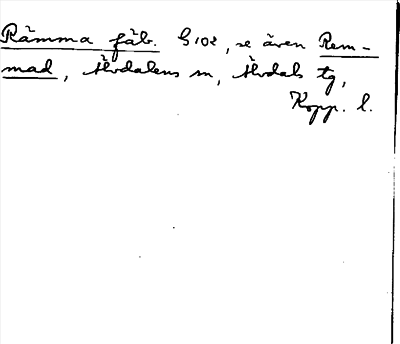 Rämma fäb. G102, se även Rem-
mad, Älvdalens sn, Älvdals tg,
Kopp. l.